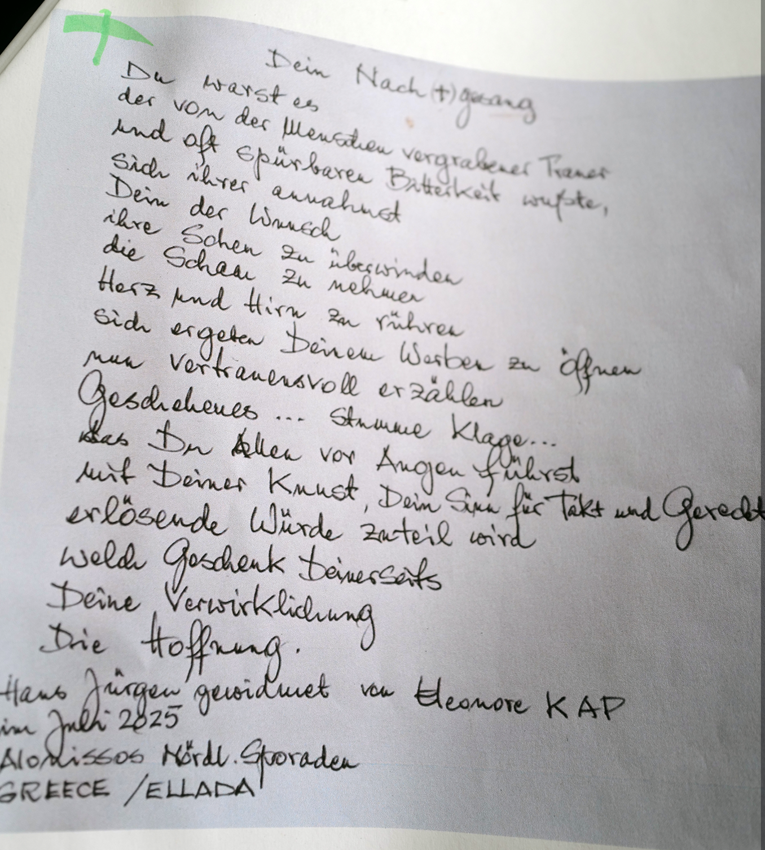 Dein Nach(t)gesang
Du warst es
der von der Menschen vergrabener Trauer
und oft spürbaren Bitterkeit wußte,
sich ihrer annahmst
Dein der Wunsch
ihre Scheu zu überwinden
die Scham zu nehmen
Herz und Hirn zu rühren
sich ergeben Deinem Werben zu öffnen
nun vertrauensvoll erzählen
Geschehenes ... stumme Klage...
das Du Allen vor Augen führst
mit Deiner Kunst, Dein Sinn für Takt und Gerecht
erlösende Würde zuteil wird
welch Geschenk Deinerseits
Deine Verwirklichung
Die Hoffnung.
Hans Jürgen gewidmet von Eleonore KAP
im Juli 2025
Alonissos Nördl. Sporaden
GREECE /ELLADA